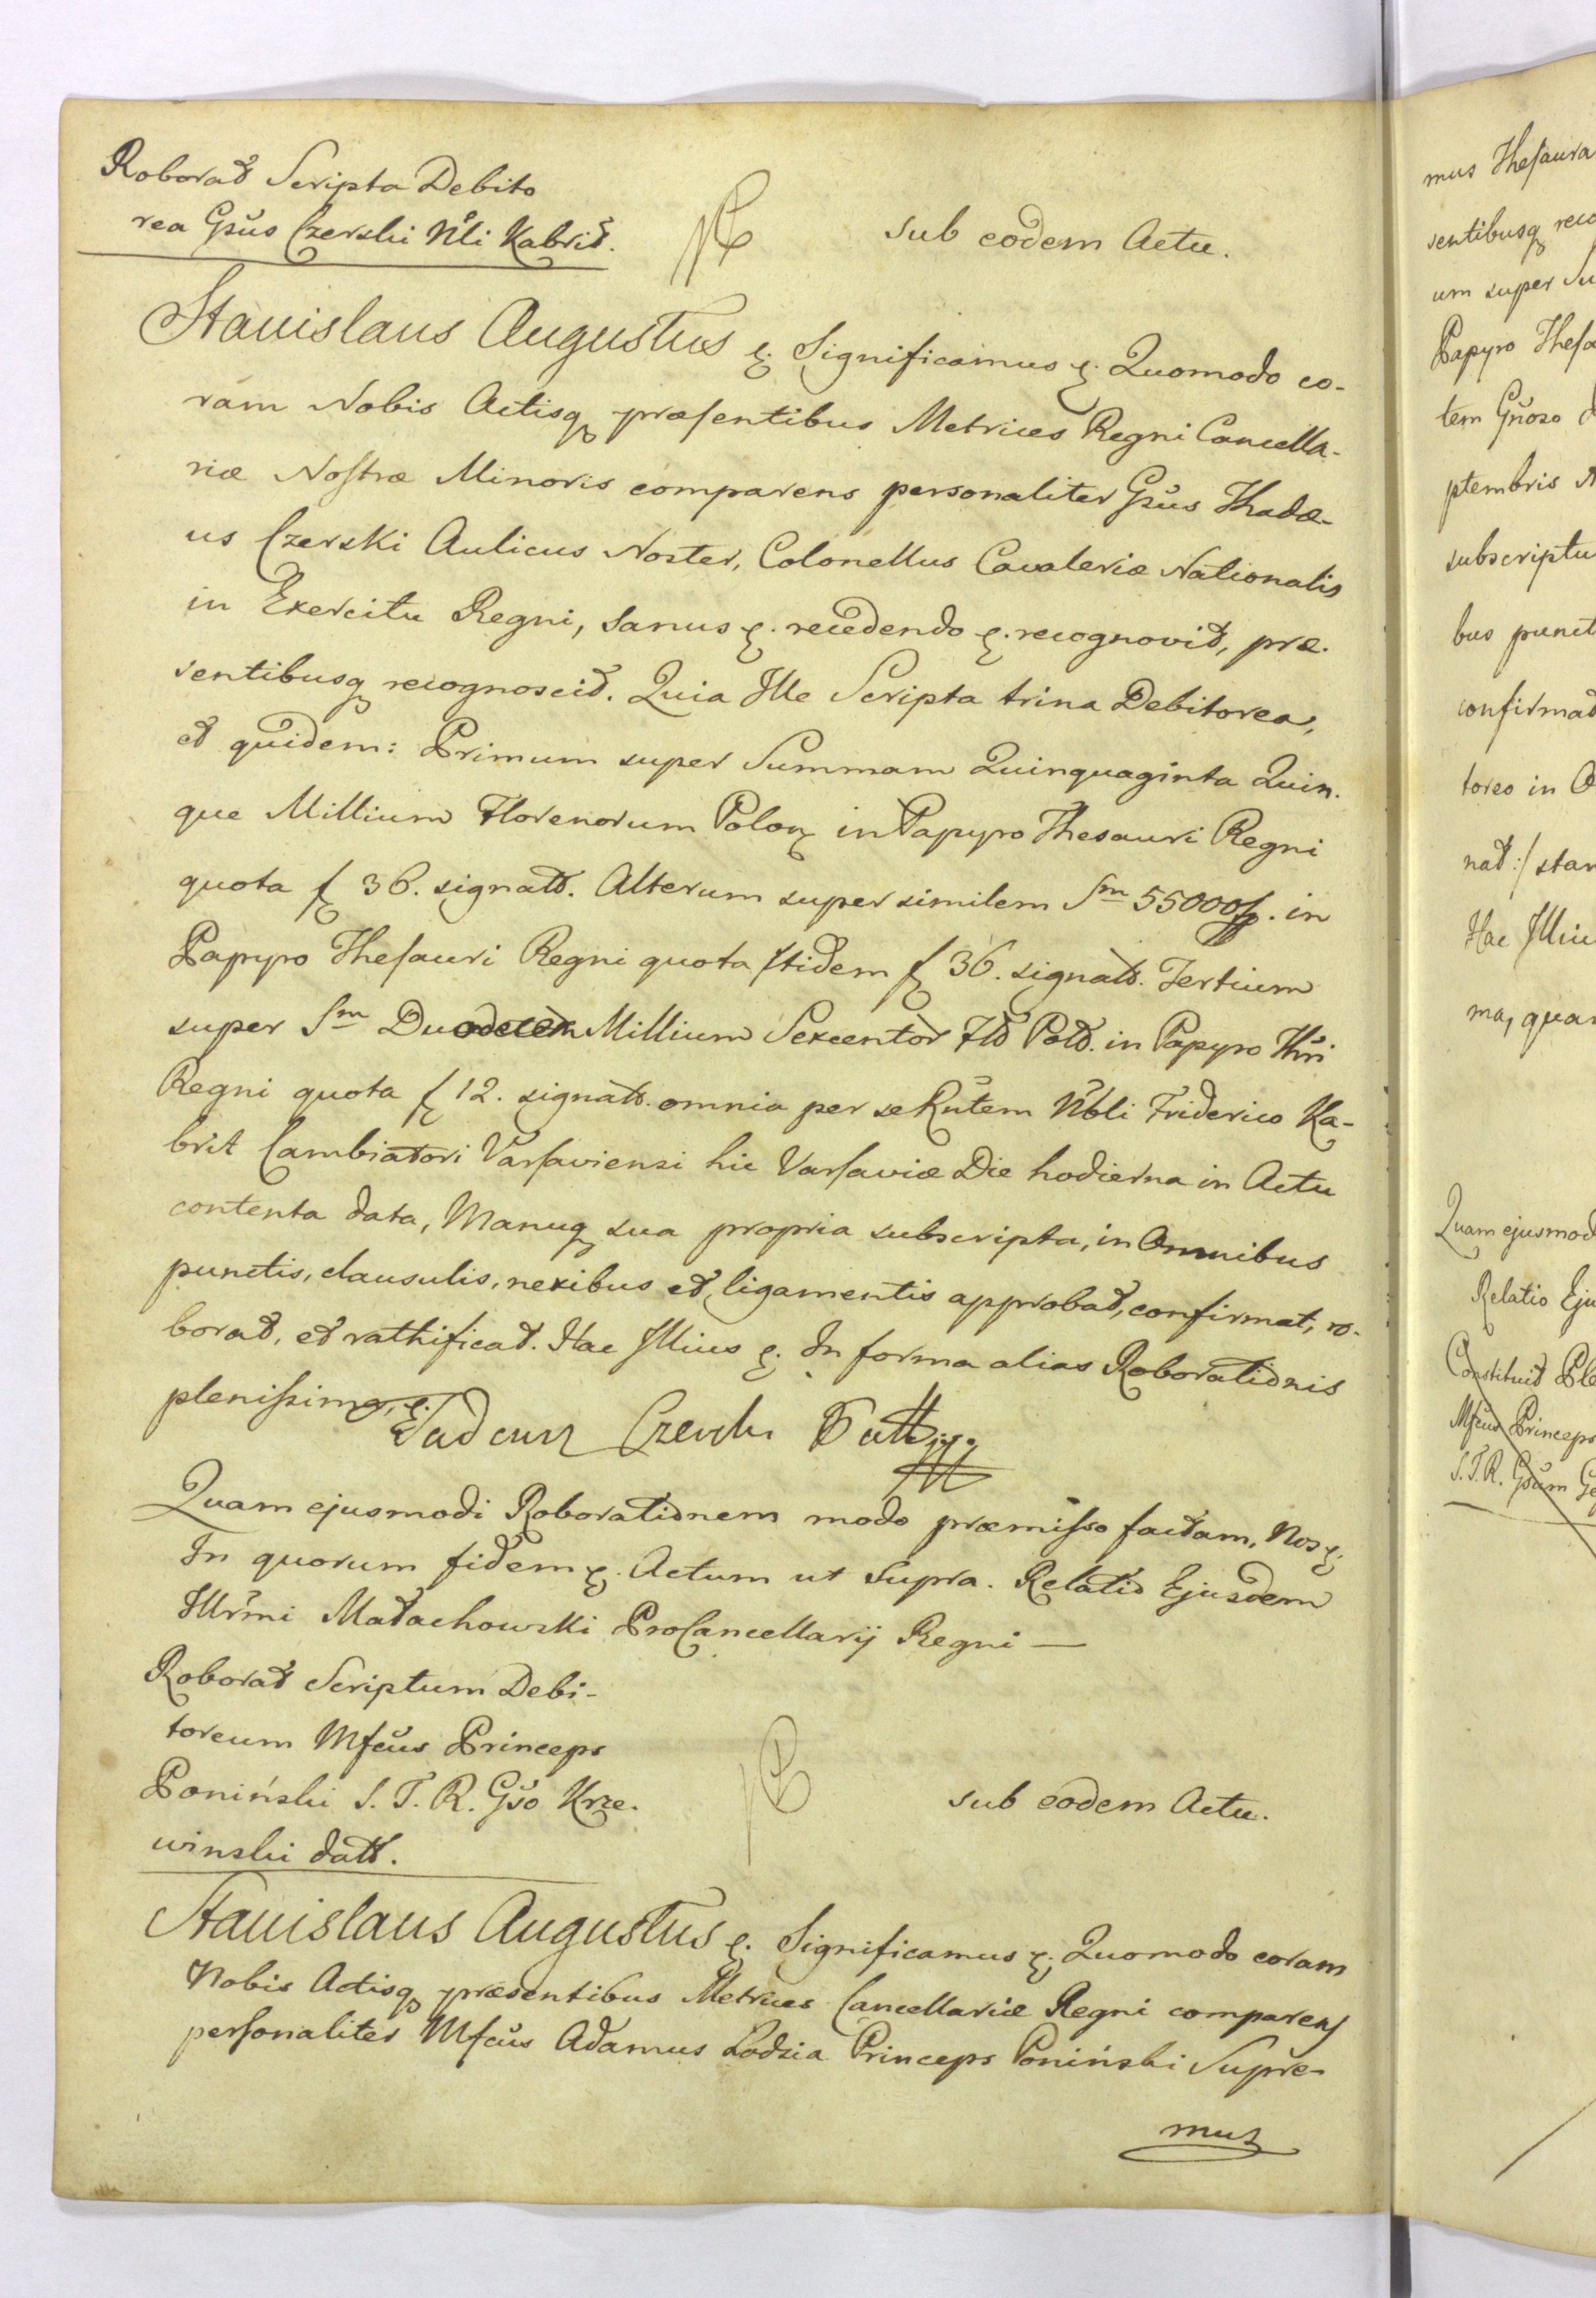 Roborat Scripta Debito
rea Gsus Czerski Nli Kabrit.
sub eodem Actu.
Stanislaus Augustus &. Significamus &. Quomodo co-
ram Nobis Actisq præsentibus Metrices Regni Cancella-
riæ Nostræ Minoris comparens personaliter Gsus Thadæ-
us Czerski Aulicus Noster, Colonellus Cavaleriæ Nationalis
in Exercitu Regni, sanus &. recedendo &. recognovit, præ-
sentibusq recognoscit. Quia Ille Scripta trina Debitorea,
et quidem: Primum super Summam Quinquaginta Quin-
que Millium Florenorum Polon in Papyro Thesauri Regni
quota f 36. signatt. Alterum super similem Sm 55000 f. in
Papyro Thesauri Regni quota itidem f 36. signatt. Tertium
super Sm Duodecem Millium Sexcentor Fl Pol. in Papyro Thri
Regni quota f 12. signatt. omnia per se Rntem Nbli Friderico Ka-
brit Cambiatori Varsaviensi hic Varsaviæ Die hodierna in Actu
contenta data, Manuq sua propria subscripta, in Omnibus
punctis, clausulis, nexibus et ligamentis approbat, confirmat, ro-
borat, et rathificat. Hac Illius &. In forma alias Roborationis
plenissima, &.
Tadeusz Czerski
Quam ejusmodi Roborationem modo præmisso factam, Nos &.
In quorum fidem &. Actum ut supra. Relatio Ejusdem
Illrmi Małachowski ProCancellarij Regni —
Roborat Scriptum Debi-
toreum Mfcus Princeps
Poniński S. T. R. Gso Krze-
winski datt.
sub eodem Actu.
Stanislaus Augustus &. Significamus &. Quomodo coram
Nobis Actisq præsentibus Metrices Cancellariæ Regni comparens
personaliter Mfcus Adamus Lodzia Princeps Poniński Supre-
mus
mus Thesaura
sentibusq reco
um super Su
Papyro Thesa
tem Gnoso
ptembris
subscriptu
bus punct
confirmat
toreo in
nat :/ stan
Hac Illiu
ma, quam
Quam ejusmod
Relatio Eju
Constituit Ple
Mfcus Princeps
S. T. R. Gsum